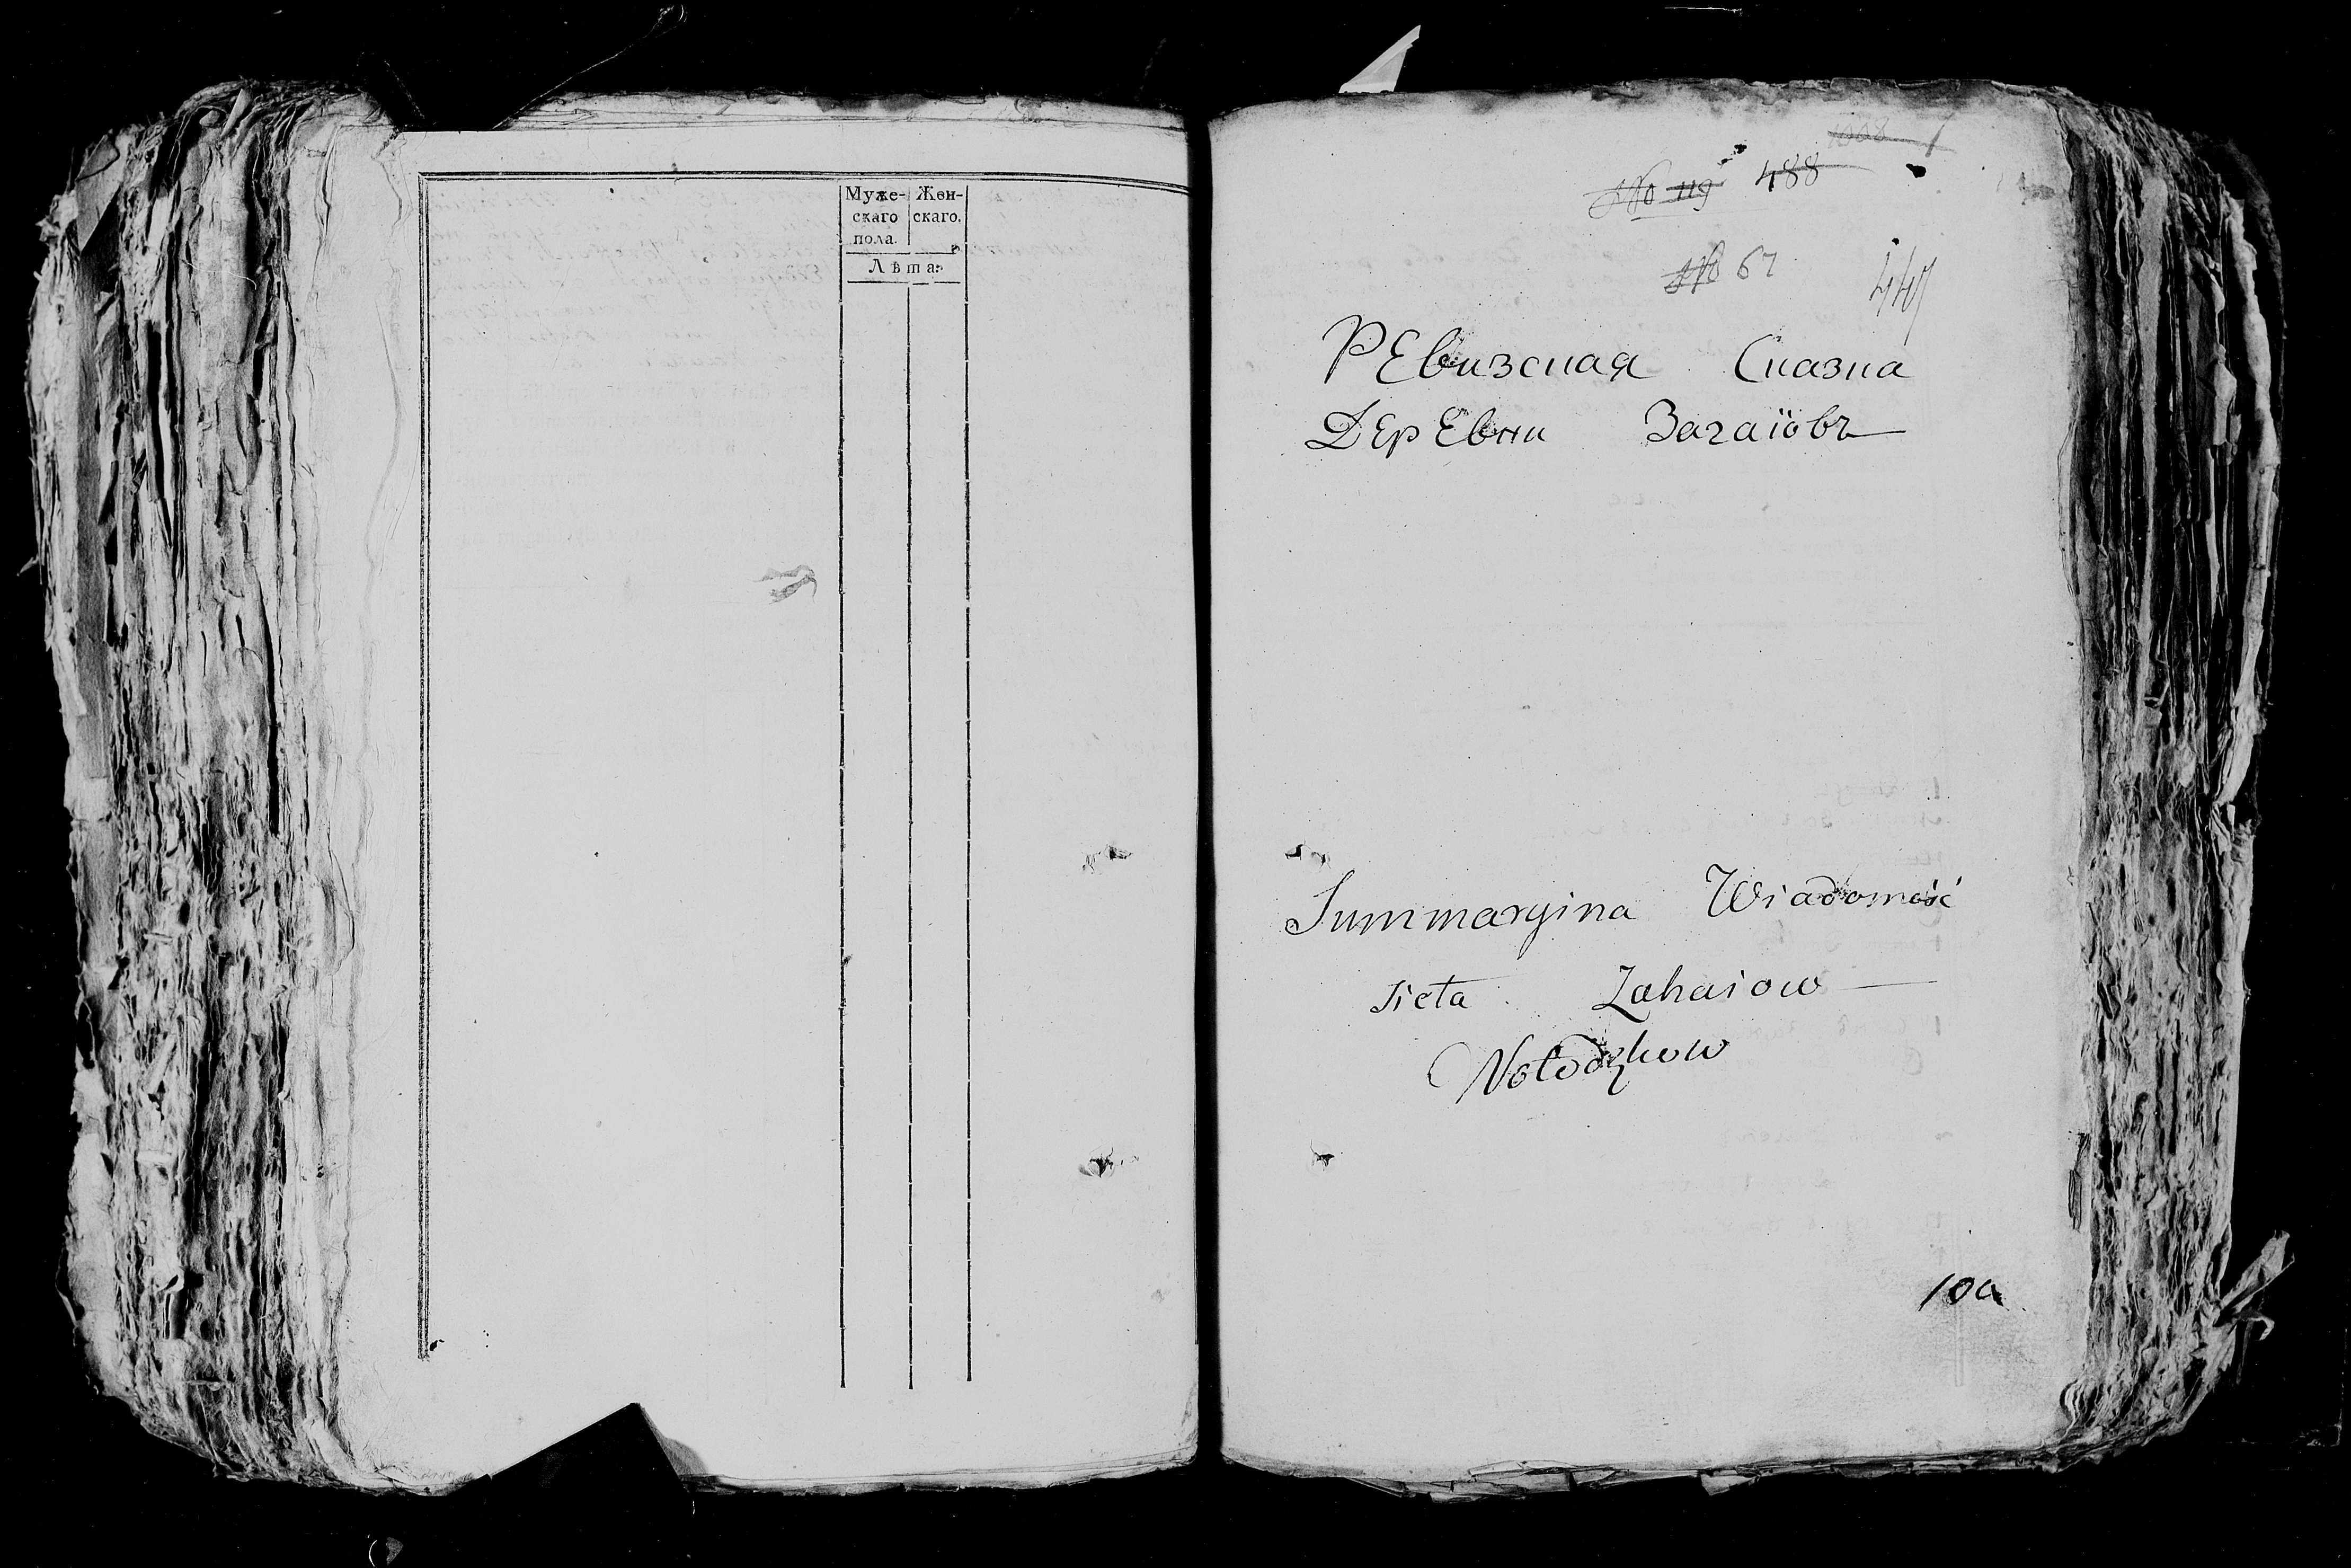 Муже- Жен-
скаго скаго.
пола.
Лѣта:
1008
№ 119 488
№ 67
РЕвизская Сказка
ДЕрЕвни Загаіовъ
Summaryina Wiadomość
Sieła Zahaiow
Wołodzkow
10a